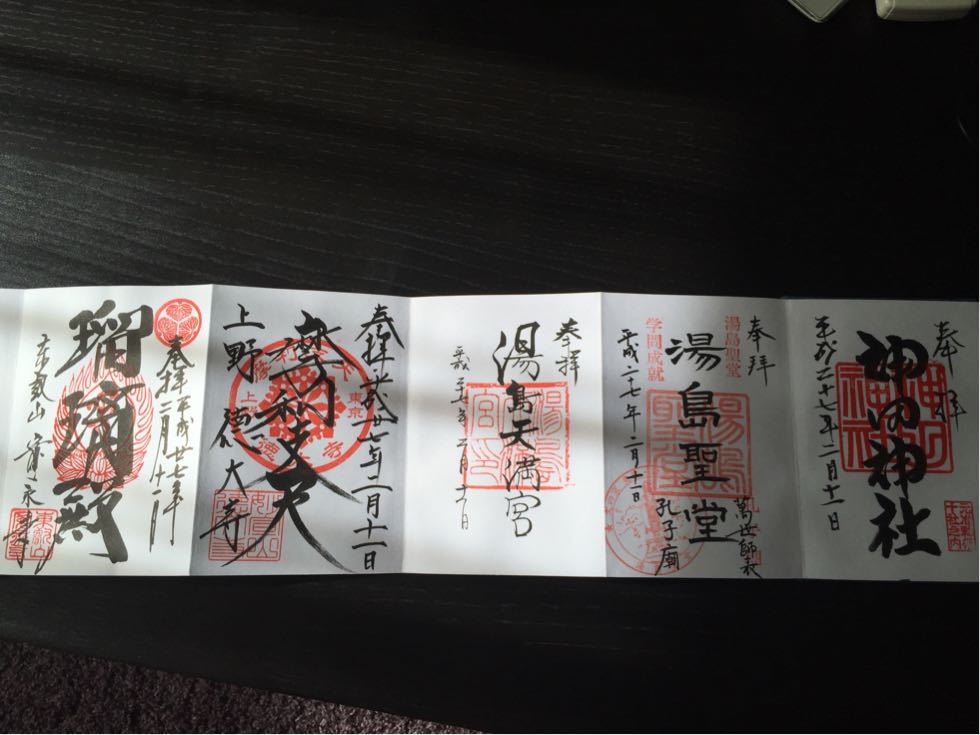 奉拝
神田神社
平成二十七年二月十一日
奉拝
湯島聖堂
学問成就
萬世師表
湯島聖堂
孔子廟
平成二十七年二月十一日
奉拝
湯島天満宮
平成二十七年二月十一日
奉拝 廿七年二月十一日
摩利支天
東京
上野 徳大寺
奉拝 平成廿七年
二月十一日
瑠璃殿
東叡山 寛永寺